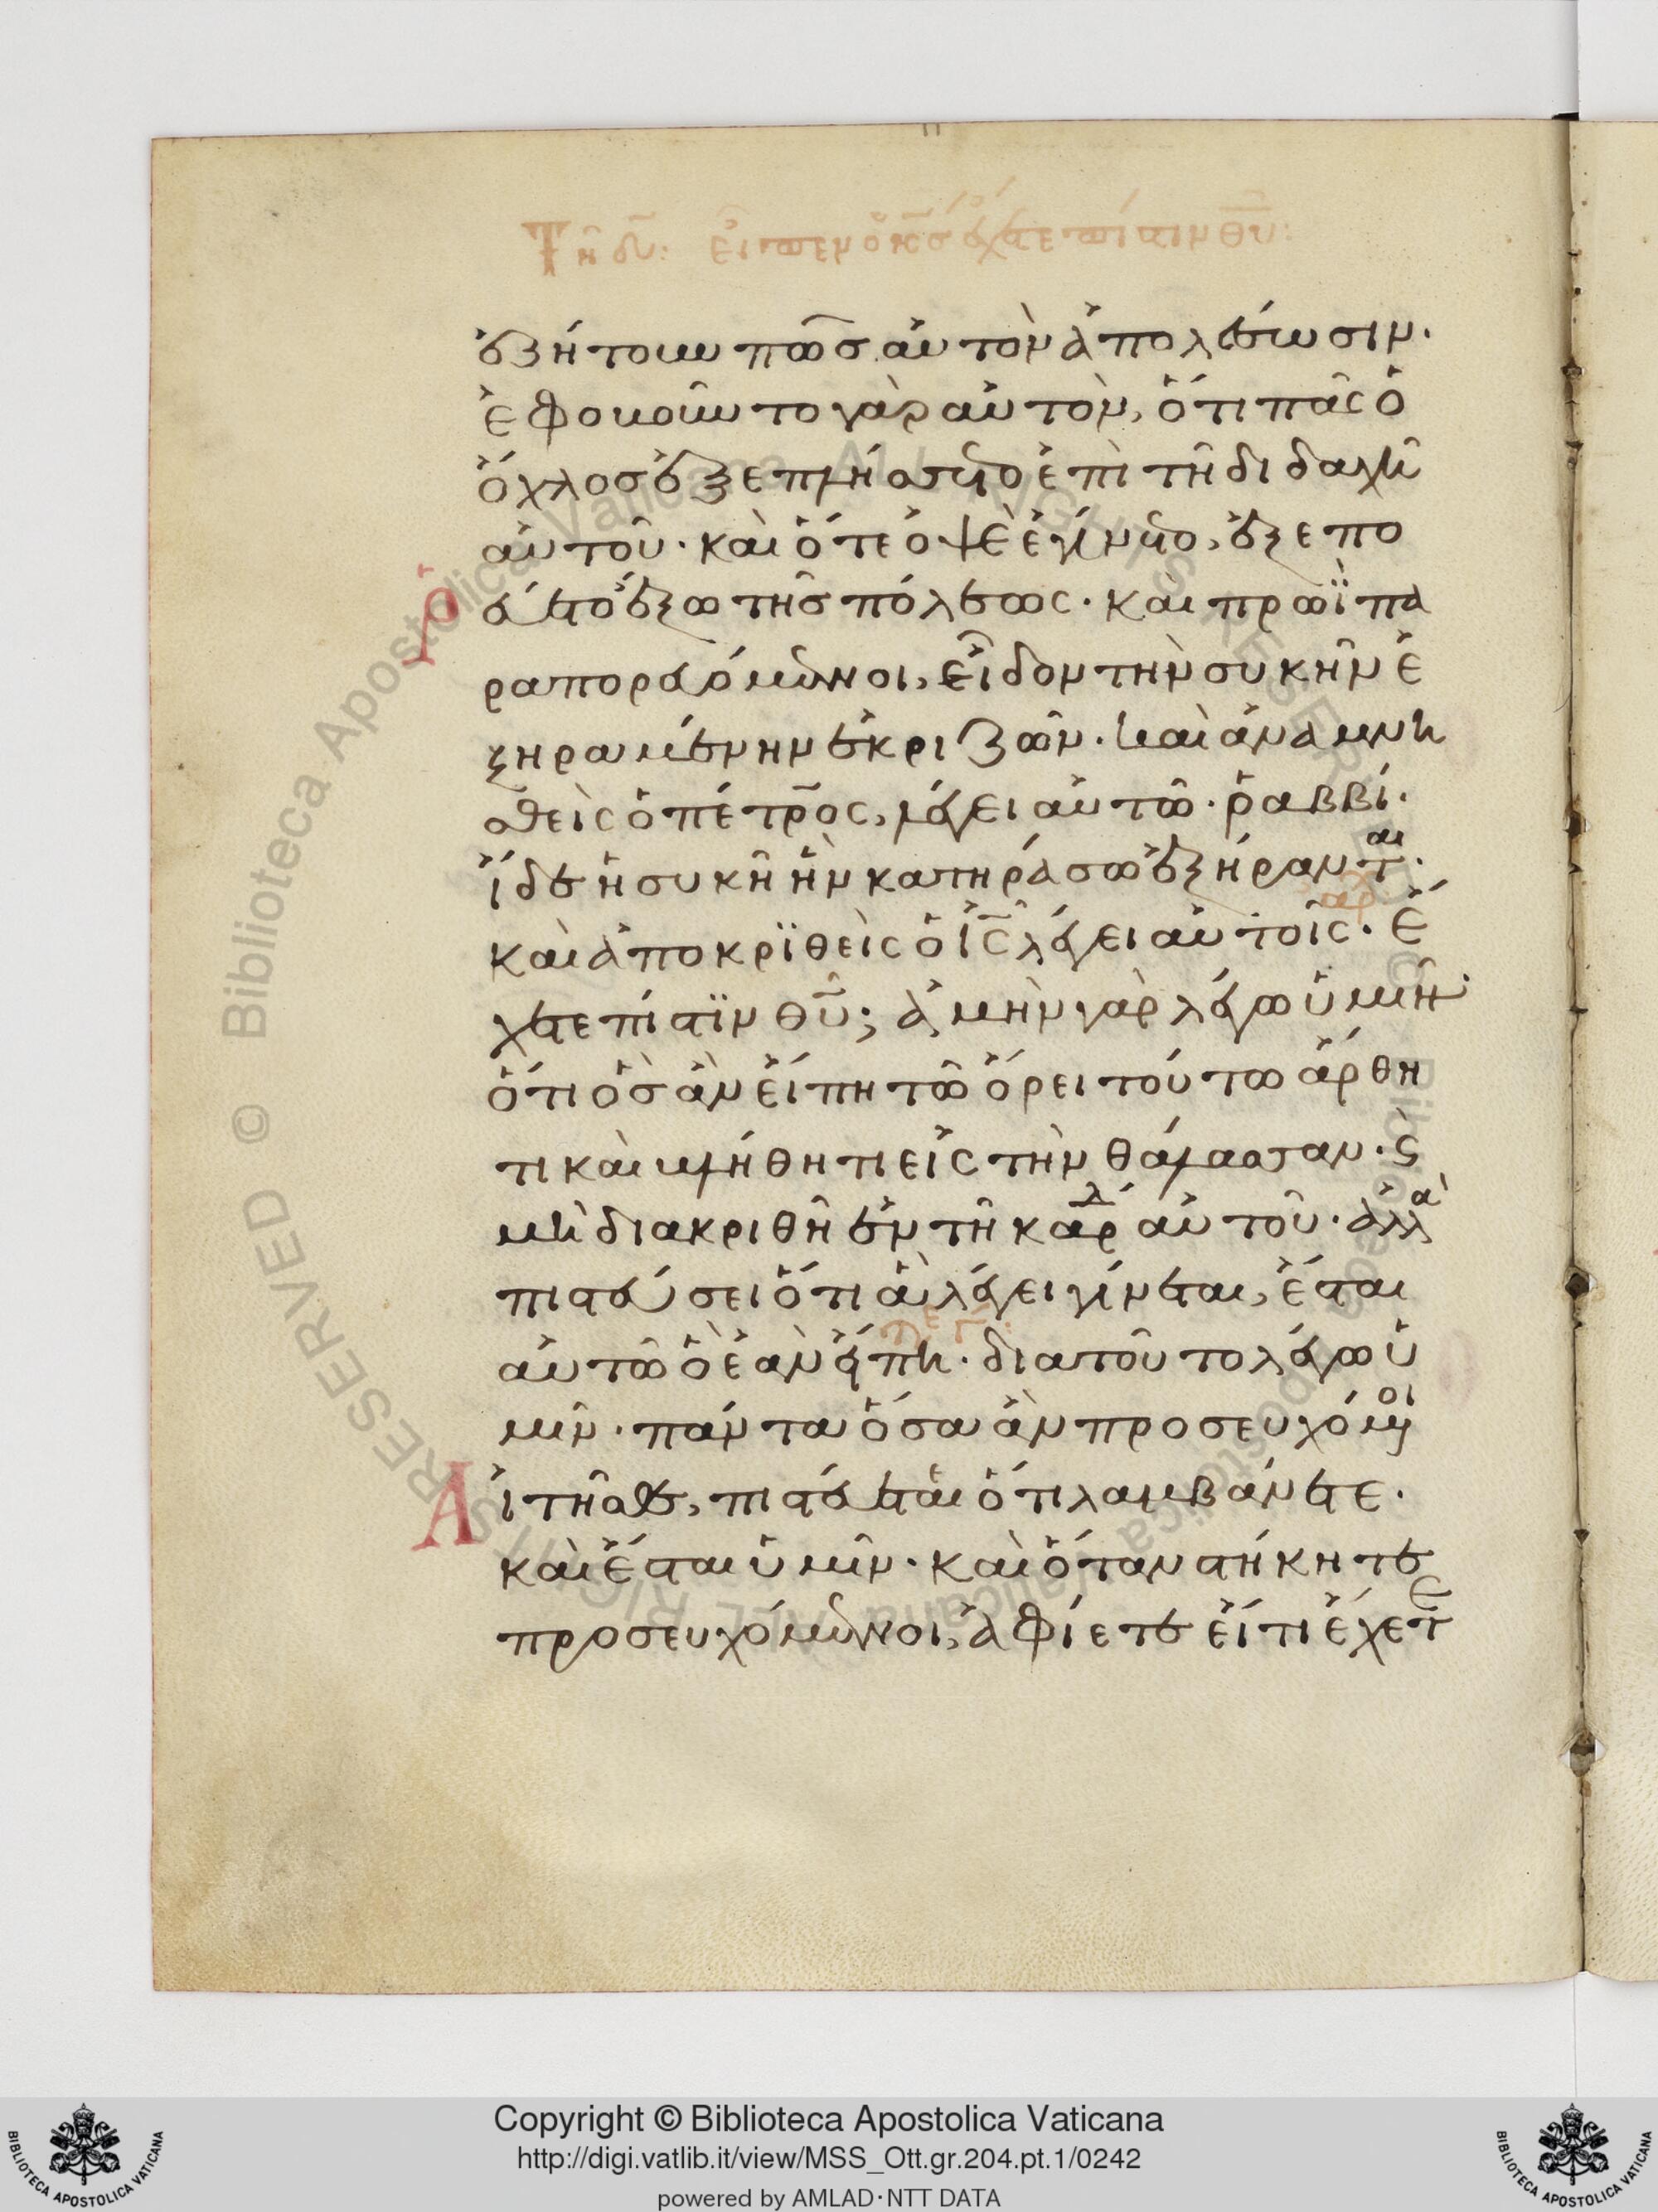 Τῆ δ: εἶπεν ὁ κς ἔχετε πίστιν θυ:
ἐζήτουν πῶς αὐτὸν ἀπολέσωσιν·
ἐφοβοῦντο γὰρ αὐτὸν, ὅτι πᾶς ὁ
ὄχλος ἐξεπλήσσετο ἐπὶ τῆ διδαχῆ
αὐτοῦ· καὶ ὅτε ὀψὲ ἐγίνετο, ἐξεπο
ρεύετο ἔξω τῆς πόλεως· καὶ πρωῒ πα
ραπορευόμενοι, εἶδον τὴν συκῆν ἐ
ξηραμένην ἐκ ριζῶν· καὶ ἀναμνη
σθεὶς ὁ πέτρος, λέγει αὐτῶ· ῥαββί·
ἴδε ἡ συκῆ ἣν κατηράσω ἐξήρανται·
αρ
καὶ ἀποκρϊθεὶς ὁ ις λέγει αὐτοῖς· ἔ
χετε πίστϊν θυ; ἀμὴν γὰρ λέγω ὑμῖν
ὅτι ὃς ἂν εἴπη τῶ ὄρει τούτω ἄρθη
τι καὶ βλήθητι εἰς τὴν θάλασσαν· ϛ
μὴ διακριθῆ ἐν τῆ καρδ αὐτοῦ· ἀλλὰ
πιστεύσει ὅτι ἃ λέγει γίνεται, ἔσται
αὐτῶ ὃ ἐὰν εἴπη· διατοῦτο λέγω ὑ
μῖν· πάντα ὅσα ἂν προσευχόμενοι
Αἰτῆσθε, πιστεύεται ὅτι λαμβάνετε·
καὶ ἔσται ὑμῖν· καὶ ὅταν στήκητε
προσευχόμενοι, ἀφίετε εἴ τι ἔχετε